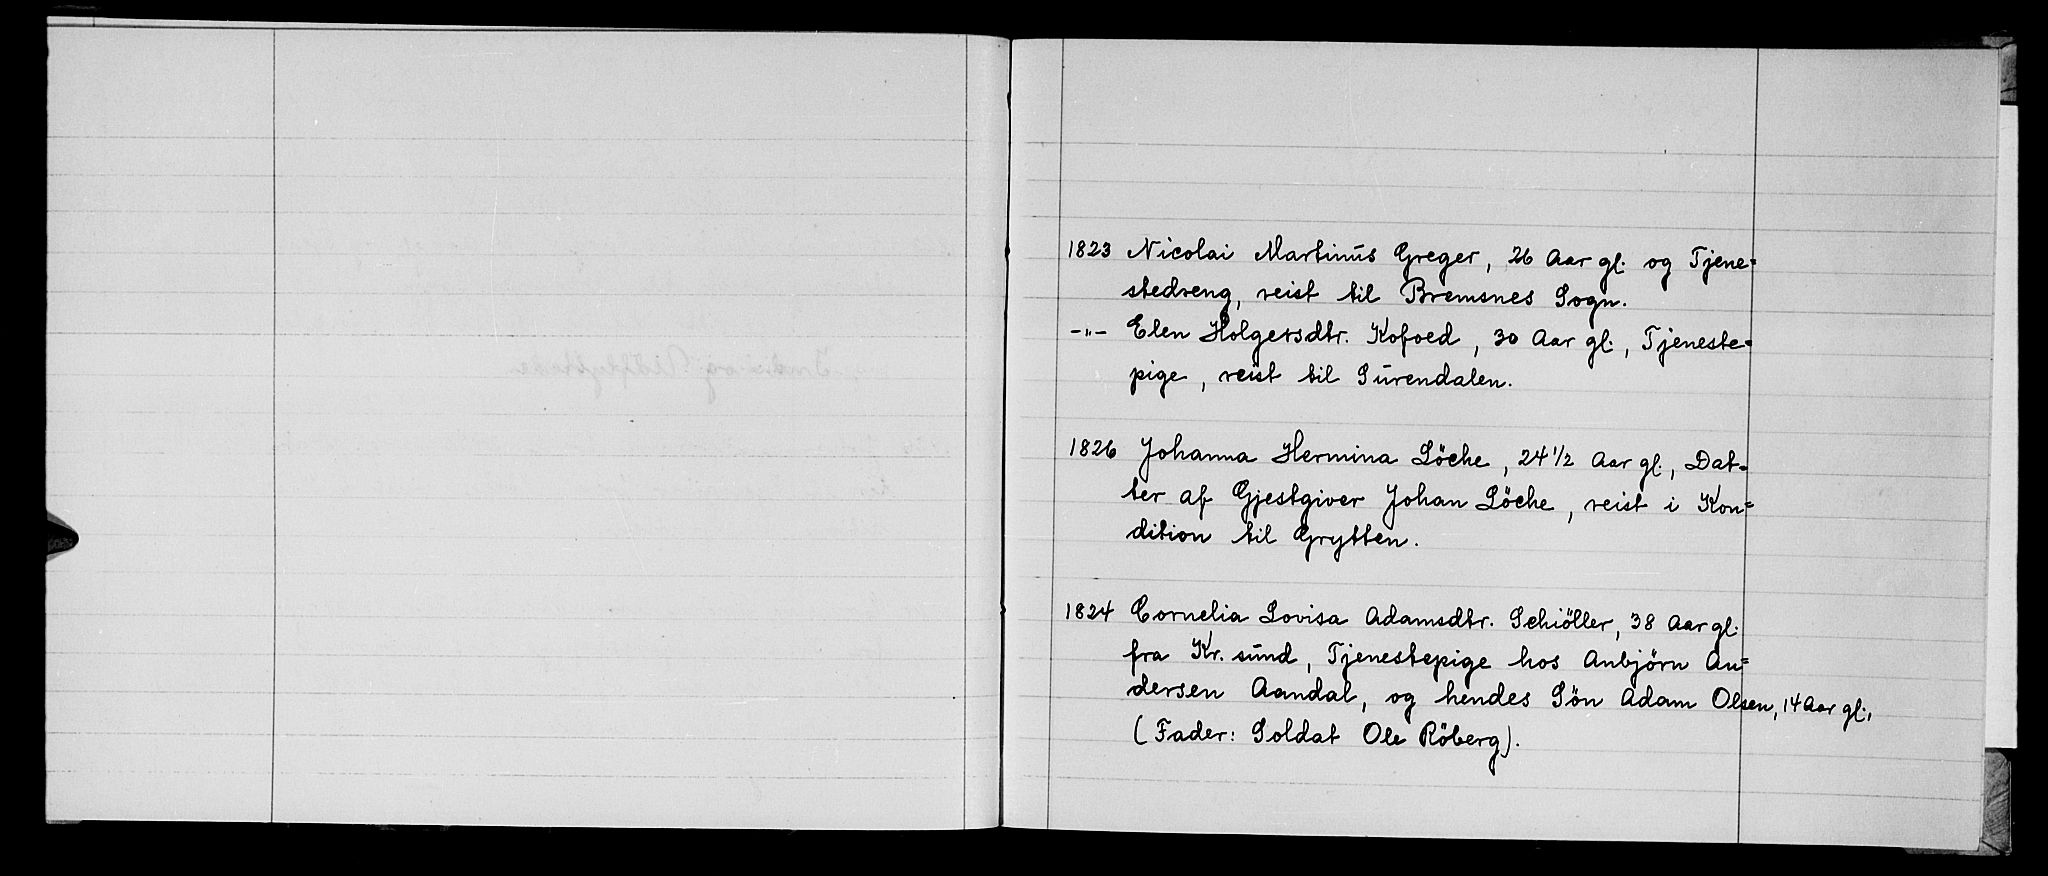 1823 Nicolai Martinus Greger, 26 Aar gl. og Tjene=
stedreng, reist til Bremsnes Sogn.
-„- Elen Holgersdtr. Kofoed, 30 Aar gl., Tjeneste=
pige, reist til Surendalen.
1826 Johanna Hermina Löche, 24 1/2 Aar gl., Dat=
ter af Gjestgiver Johan Löche, reist i Kon=
dition til Grytten.
1824 Cornelia Lovisa Adamsdtr. Schiöller, 38 Aar gl.
fra Kr. sund, Tjenestepige hos Anbjörn An=
dersen Aandal, og hendes Sön Adam Olsen, 14 Aar gl.,
(Fader: Soldat Ole Röberg).